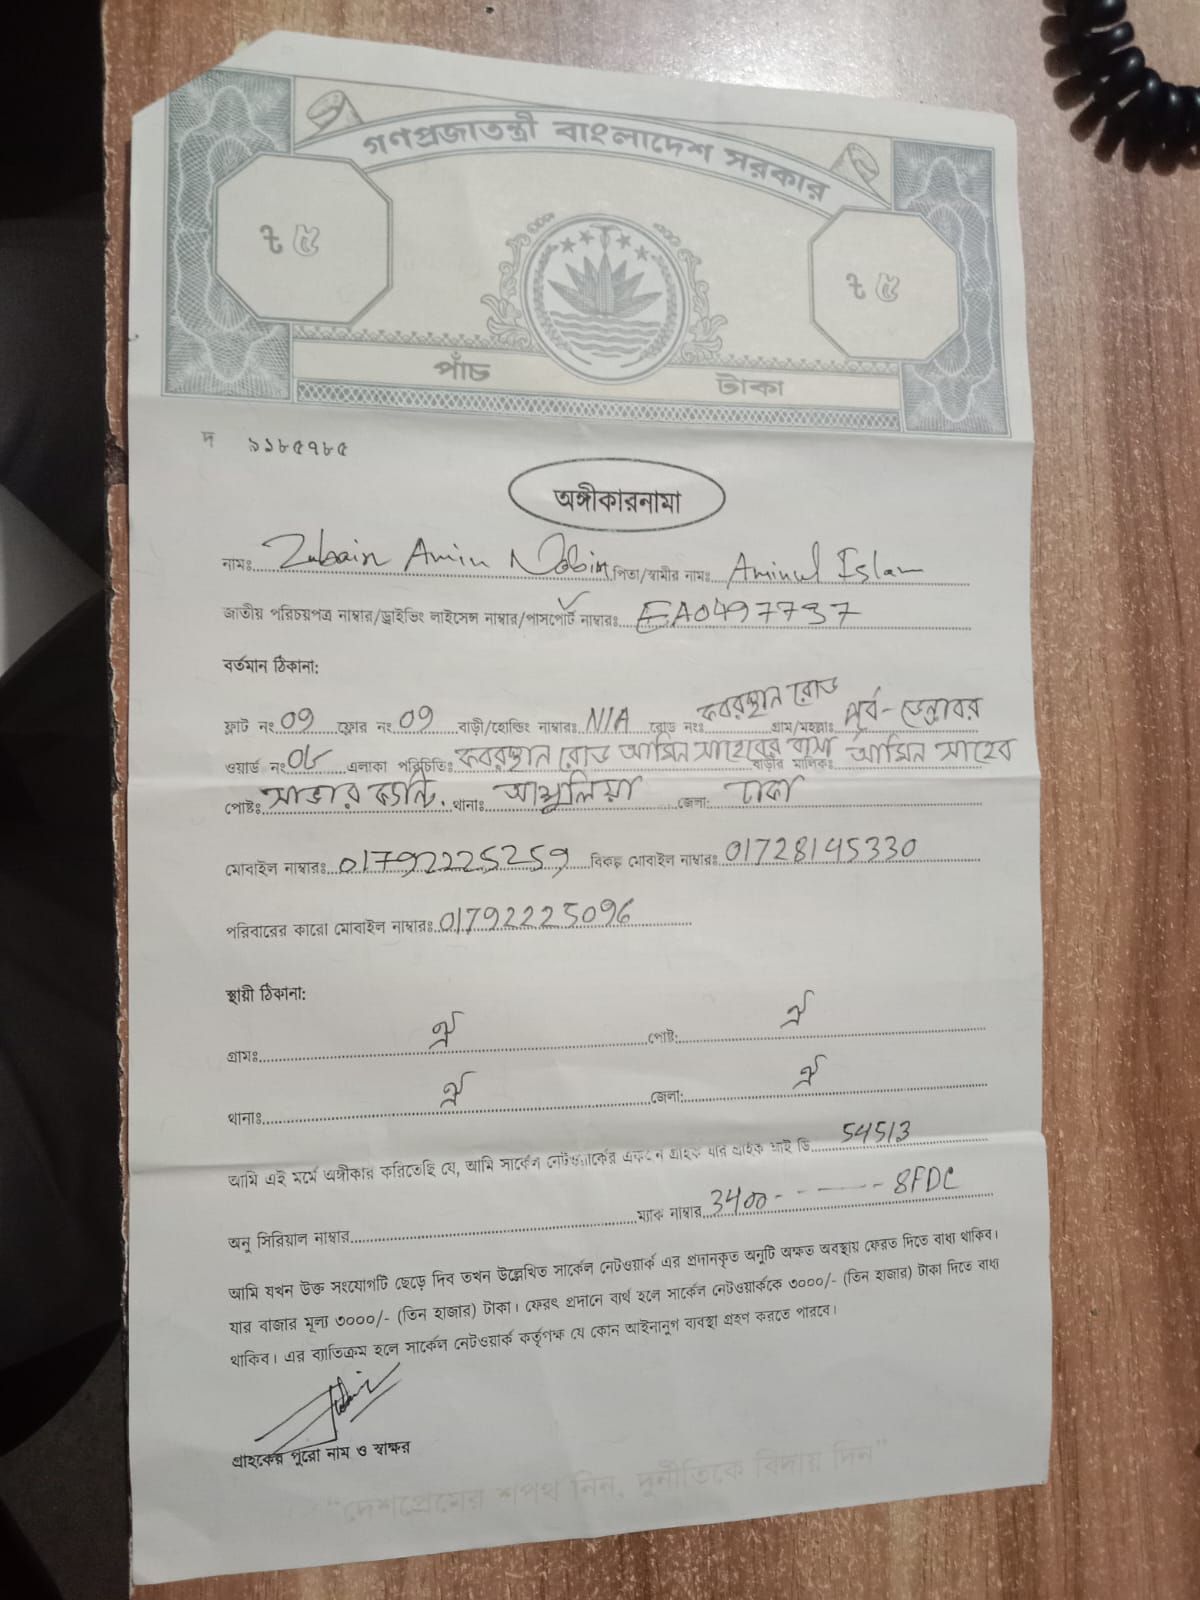 গণপ্রজাতন্ত্রী বাংলাদেশ সরকার
৳ ৫ ৳ ৫
পাঁচ টাকা
দ ৯১৮৫৭৮৫
অঙ্গীকারনামা
নামঃ Zubair Amin Nobin পিতা/স্বামীর নামঃ Aminul Islam
জাতীয় পরিচয়পত্র নাম্বার/ড্রাইভিং লাইসেন্স নাম্বার/পাসপোর্ট নাম্বারঃ EA0497737
বর্তমান ঠিকানা:
ফ্লাট নং 09 ফ্লোর নং 09 বাড়ী/হোল্ডিং নাম্বারঃ N/A রোড নং কবরস্থান রোড গ্রাম/মহল্লাঃ পূর্ব-ডেন্ডাবর
ওয়ার্ড নং 08 এলাকা পরিচিতিঃ কবরস্থান রোড আমিন সাহেবের বাসা বাড়ীর মালিকঃ আমিন সাহেব
পোষ্টঃ সাভার ক্যান্ট. থানাঃ আশুলিয়া জেলা: ঢাকা
মোবাইল নাম্বারঃ 01792225259 বিকল্প মোবাইল নাম্বারঃ 01728145330
পরিবারের কারো মোবাইল নাম্বারঃ 01792225096
স্থায়ী ঠিকানা:
গ্রামঃ ঐ পোষ্ট: ঐ
থানাঃ ঐ জেলা: ঐ
আমি এই মর্মে অঙ্গীকার করিতেছি যে, আমি সার্কেল নেটওয়ার্কের একজন গ্রাহক যার গ্রাহক আই ডি 54513
অনু সিরিয়াল নাম্বার ম্যাক নাম্বার 3400 - - - 8FDC
আমি যখন উক্ত সংযোগটি ছেড়ে দিব তখন উল্লেখিত সার্কেল নেটওয়ার্ক এর প্রদানকৃত অনুটি অক্ষত অবস্থায় ফেরত দিতে বাধ্য থাকিব।
যার বাজার মূল্য ৩০০০/- (তিন হাজার) টাকা। ফেরৎ প্রদানে ব্যর্থ হলে সার্কেল নেটওয়ার্ককে ৩০০০/- (তিন হাজার) টাকা দিতে বাধ্য
থাকিব। এর ব্যাতিক্রম হলে সার্কেল নেটওয়ার্ক কর্তৃপক্ষ যে কোন আইনানুগ ব্যবস্থা গ্রহণ করতে পারবে।
গ্রাহকের পুরো নাম ও স্বাক্ষর
"দেশপ্রেমের শপথ নিন, দুর্নীতিকে বিদায় দিন"